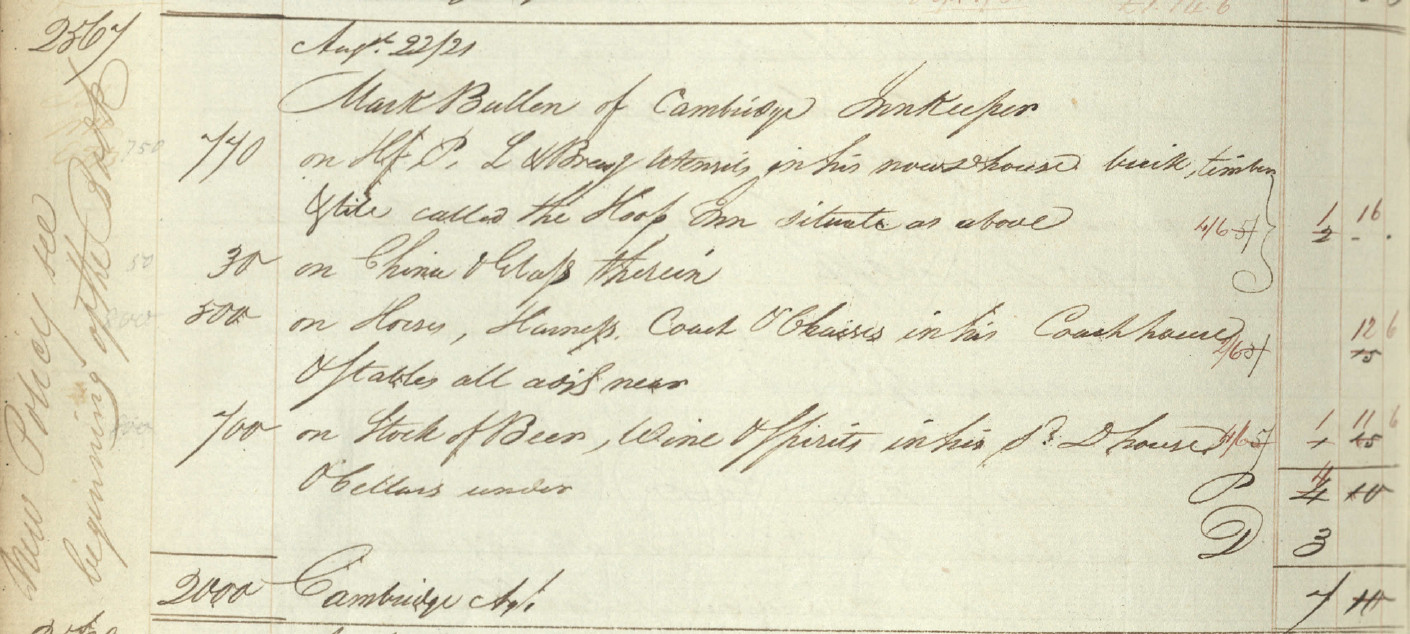 2567
Augst. 22/21
Mark Bullen of Cambridge Innkeeper
770 on Hd. F. P. L & Brewg Utensils in his now d house brick, timber
& tile called the Hoop Inn situate as above 4/6 5/ 1 16
2 - .
30 on China & Glass therein
500 on Horses, Harness, Coach & Chaises in his Coach house 2/6 3/ 12 6
15
& stables all adjg near
700 on Stock of Beer, Wine & Spirits in his sd. D house 4/6 5/ 1 11 6
1 15
& Cellars under P 4 10
D 3
2000 Cambridge Agt. 7 10
New Policy see
beginning of the Book
750
50
500
700